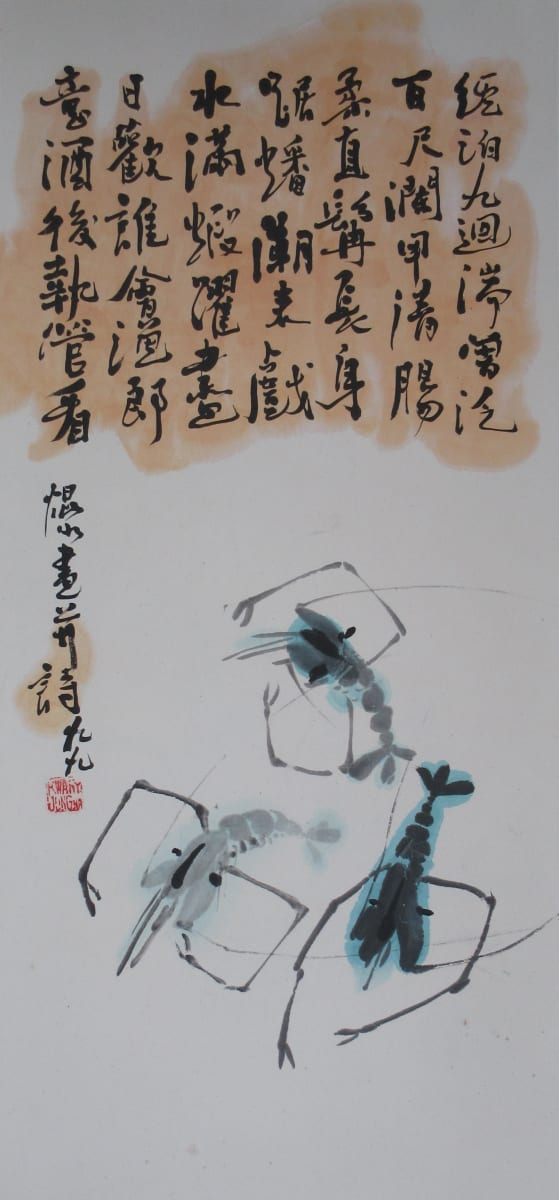 經泊九迴湍曾泛
百尺瀾甲清腸
柔直鬚長身
踞蟠潮來戲
水滿蝦躍盡
日歡誰會漁郎
意酒後執管看
焜水畫并詩九九
KWANG
JUNG